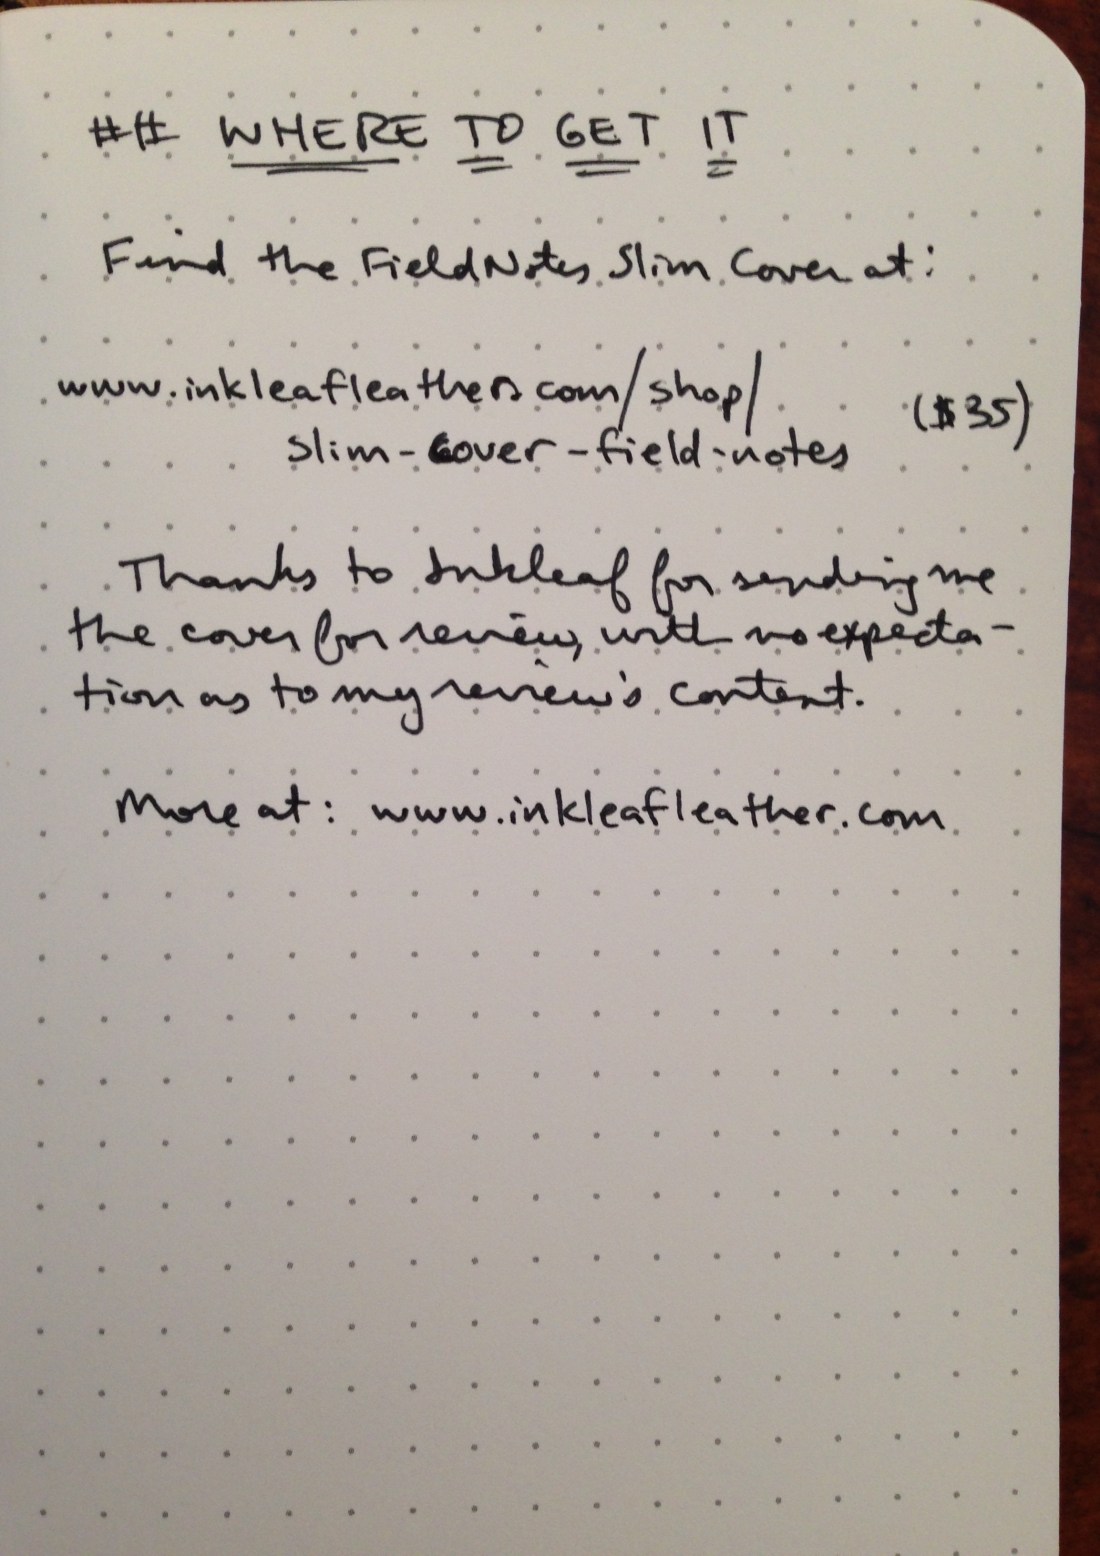 ## WHERE TO GET IT
Find the FieldNotes Slim Cover at:
www.inkleafleathers.com/shop/ ($35)
slim-cover-field-notes
Thanks to Inkleaf for sending me
the cover for review, with no expecta-
tion as to my review's content.
More at: www.inkleafleather.com